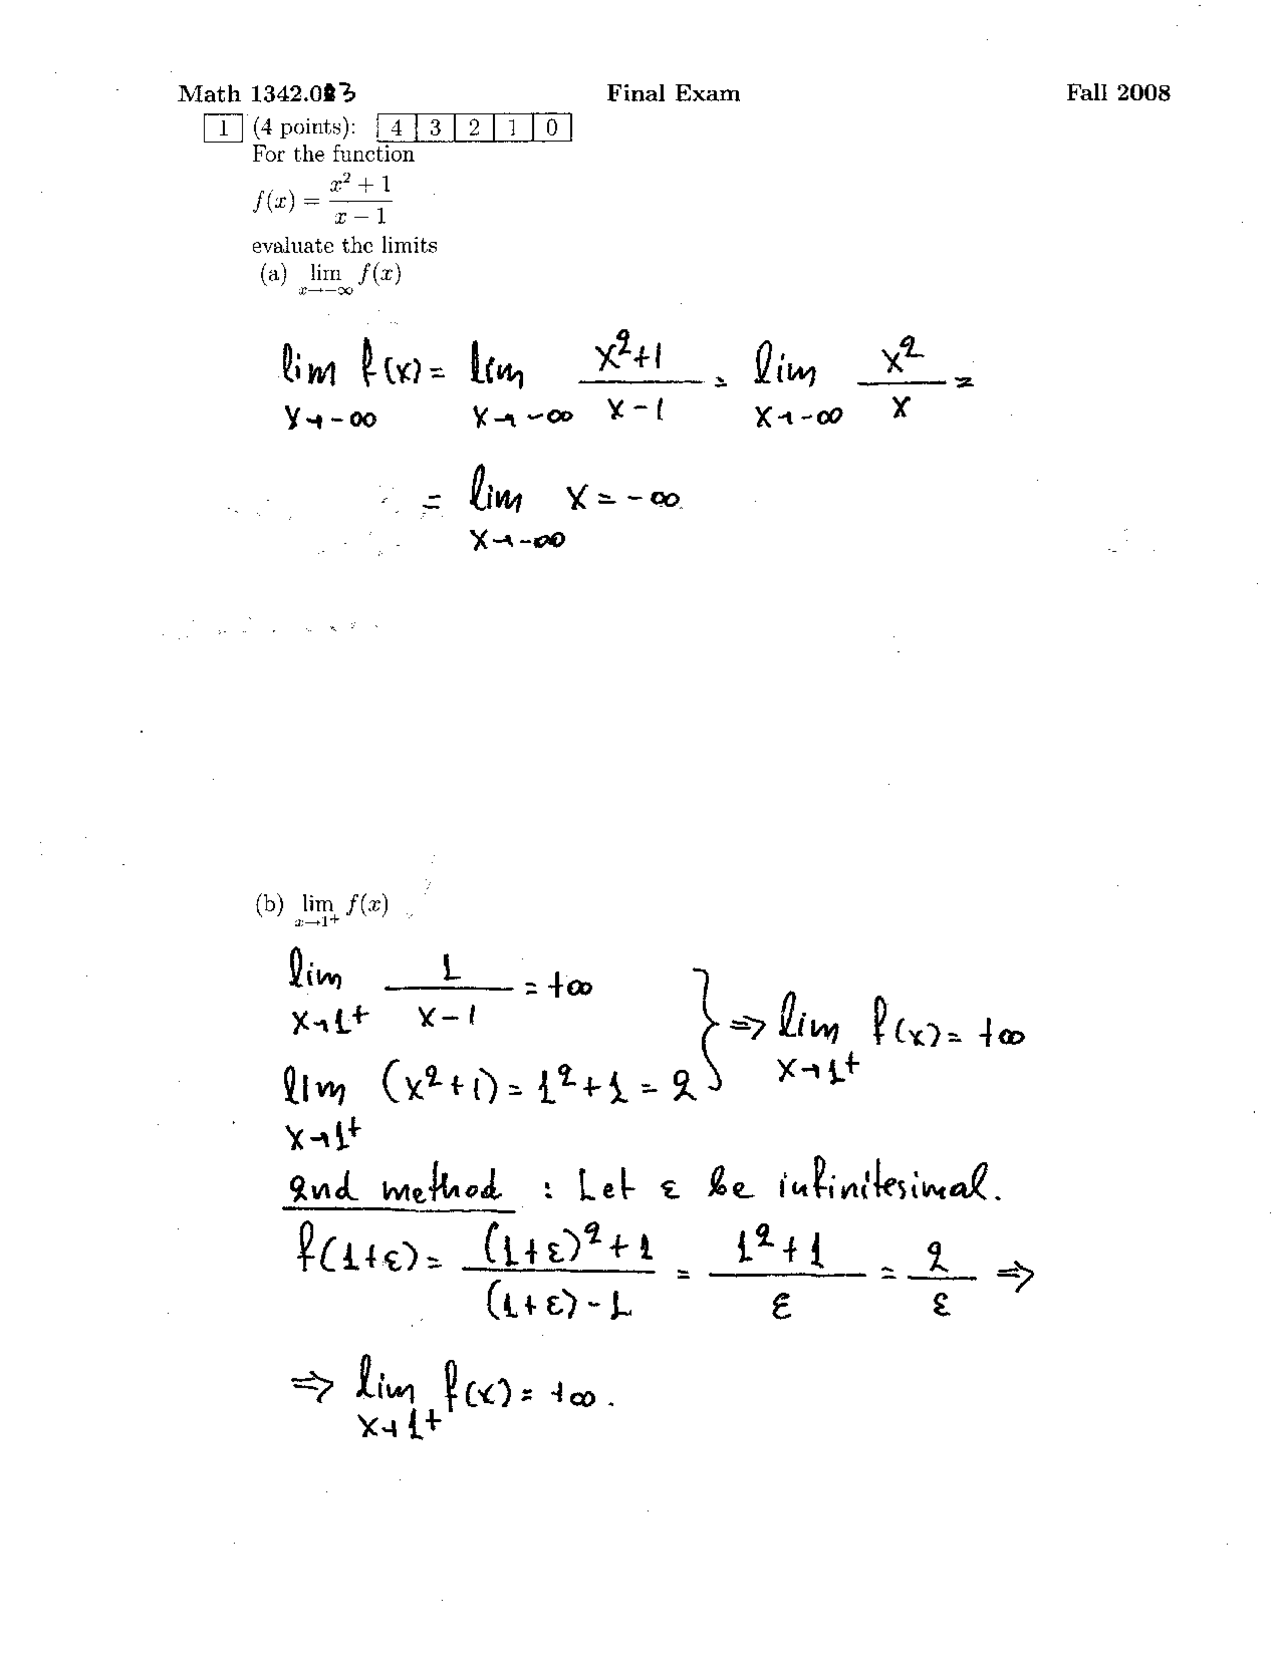 Math 1342.003 Final Exam Fall 2008
1 (4 points): 4 3 2 1 0
For the function
f(x) = (x² + 1)/(x − 1)
evaluate the limits
(a) lim_{x→−∞} f(x)
lim_{x→−∞} f(x) = lim_{x→−∞} (x²+1)/(x−1) = lim_{x→−∞} x²/x =
= lim_{x→−∞} x = −∞
(b) lim_{x→1⁺} f(x)
lim_{x→1⁺} 1/(x−1) = +∞
lim_{x→1⁺} (x²+1) = 1²+1 = 2 } ⇒ lim_{x→1⁺} f(x) = +∞
2nd method : Let ε be infinitesimal.
f(1+ε) = ((1+ε)²+1)/((1+ε)−1) = (1²+1)/ε = 2/ε ⇒
⇒ lim_{x→1⁺} f(x) = +∞.